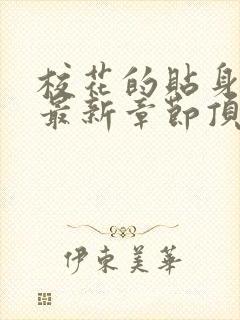 校花的貼身
最新章節頂
伊東美華